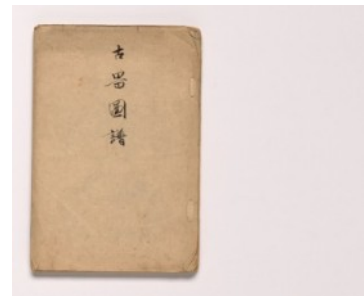 古器圖譜